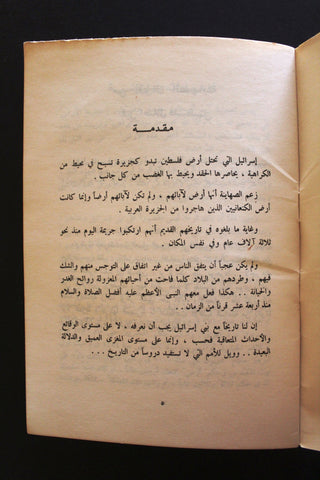 مقدمة
إسرائيل التي تحتل أرض فلسطين تبدو كجزيرة تسبح في محيط من
الكراهية ، يحاصرها الحقد ويحيط بها الغضب من كل جانب .
زعم الصهاينة أنها أرض لآبائهم ، ولم تكن لآبائهم أرضاً وإنما كانت
أرض الكنعانيين الذين هاجروا من الجزيرة العربية .
وغاية ما بلغوه في تاريخهم القديم أنهم ارتكبوا جريمة اليوم منذ نحو
ثلاثة آلاف عام وفي نفس المكان .
ولم يكن عجباً أن يتفق الناس من غير اتفاق على التوجس منهم والشك
فيهم ، وطردهم من البلاد كلما فاحت من أحيائهم المعزولة روائح الغدر
والخيانة .. هكذا فعل معهم النبى الأعظم عليه أفضل الصلاة والسلام
منذ أربعة عشر قرناً من الزمان ..
إن لنا تاريخاً مع بني إسرائيل يجب أن نعرفه ، لا على مستوى الوقائع
والأحداث المتعاقبة فحسب ، وإنما على مستوى المغزى العميق والدلالة
البعيدة .. وويل للأمم التي لا تستفيد دروساً من التاريخ ...